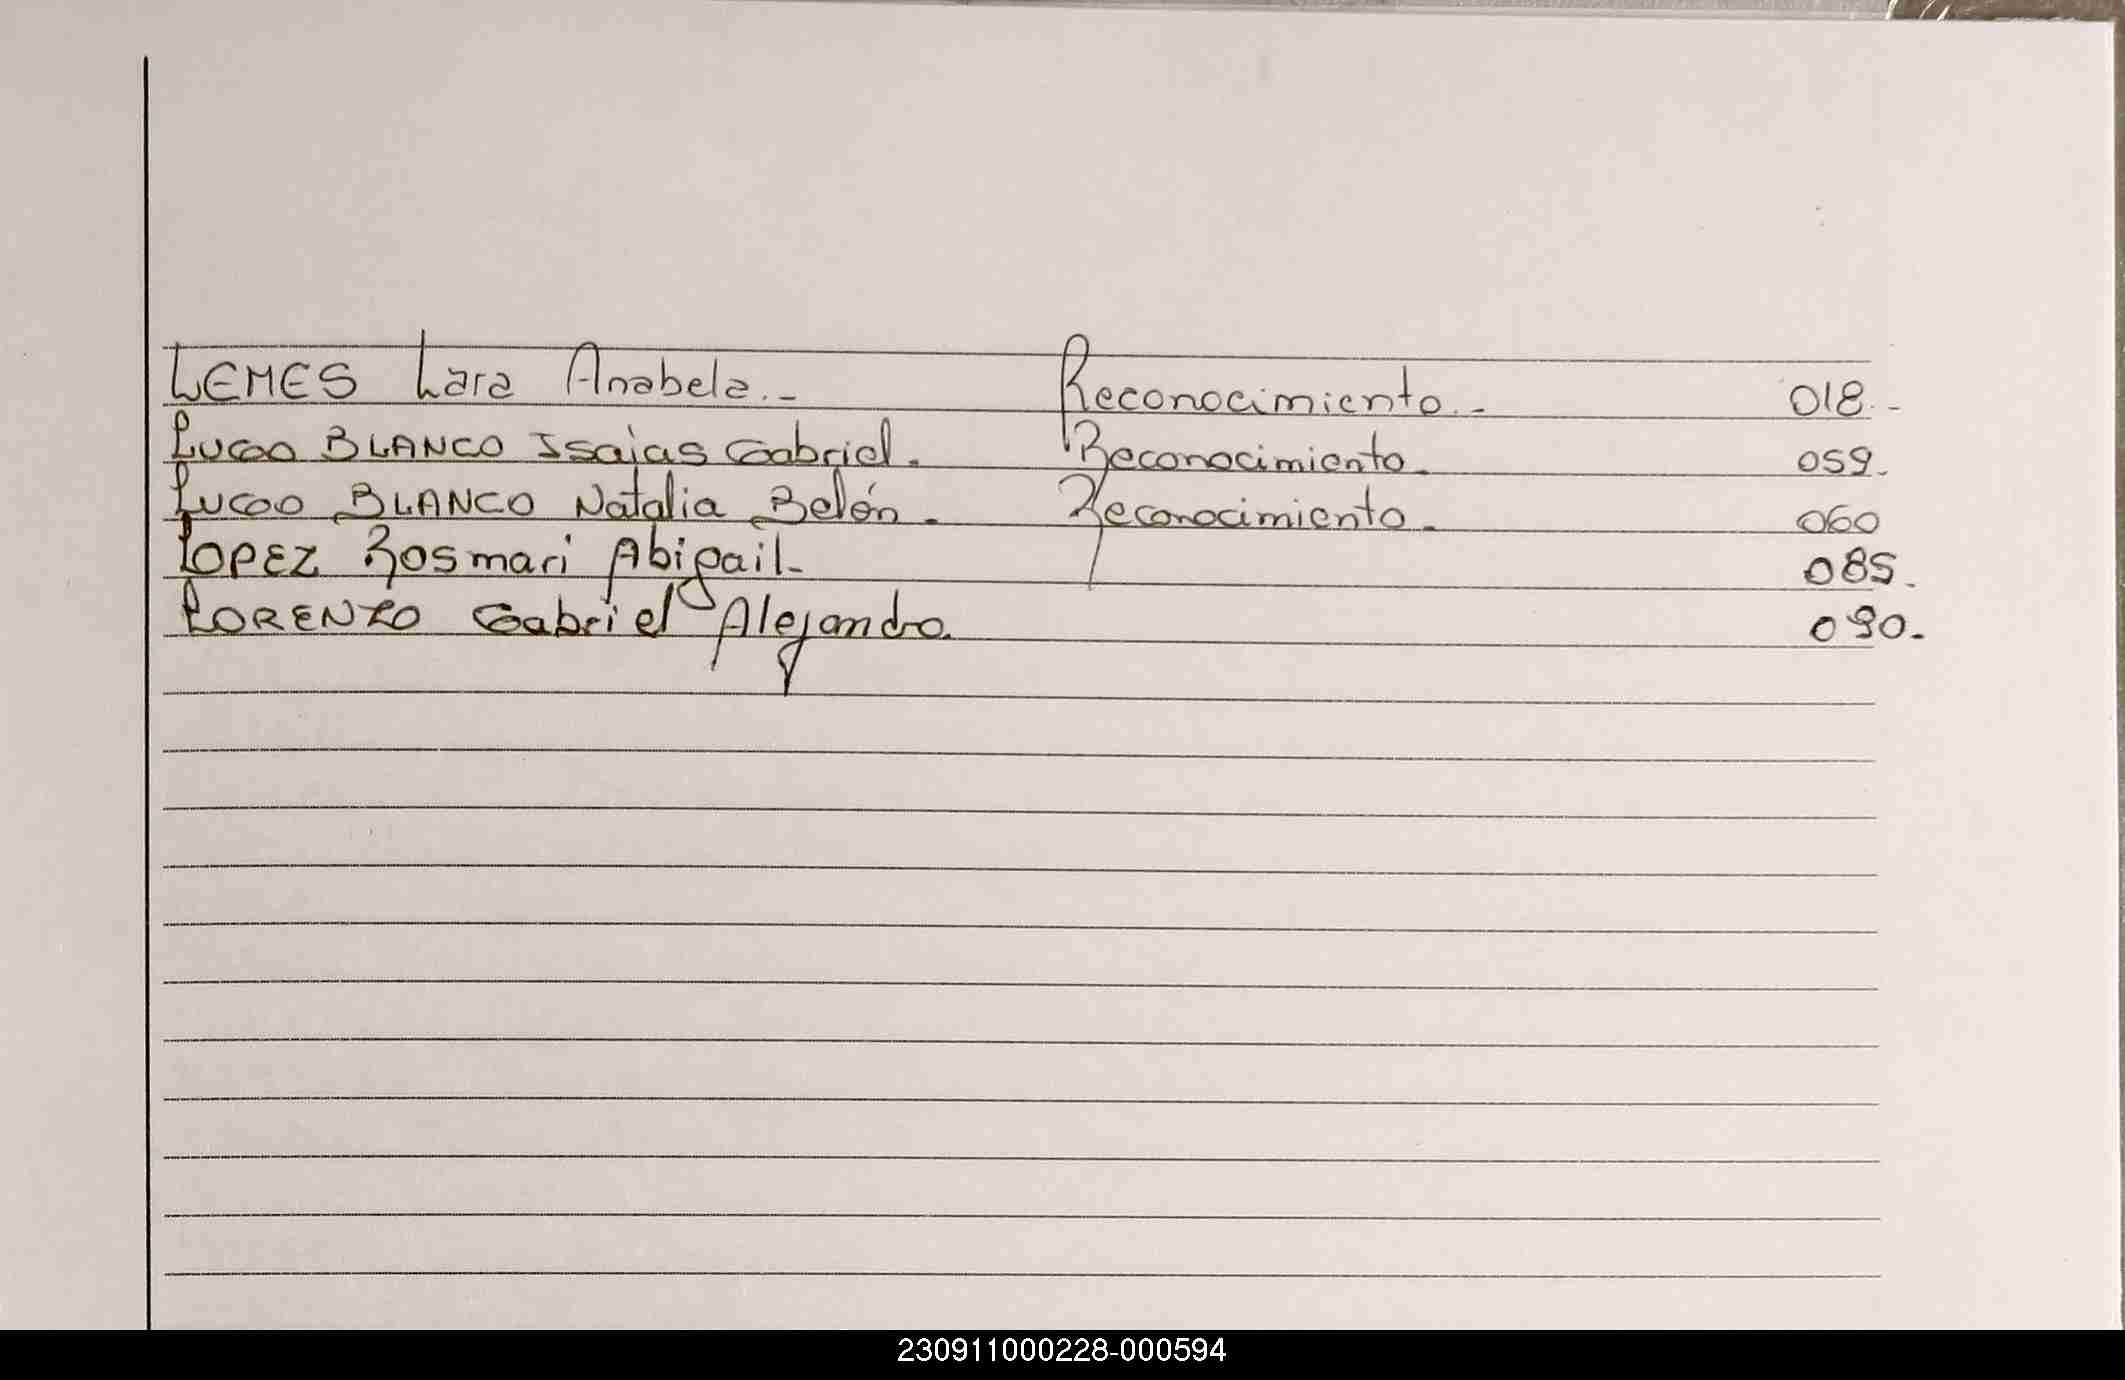 LEMES Lara Anabela.- Reconocimiento.- 018.-
LUGO BLANCO Isaias Gabriel. Reconocimiento. 059.
LUGO BLANCO Natalia Belén. Reconocimiento. 060
LOPEZ Rosmari Abigail- 085.
LORENZO Gabriel Alejandro. 090.
230911000228-000594